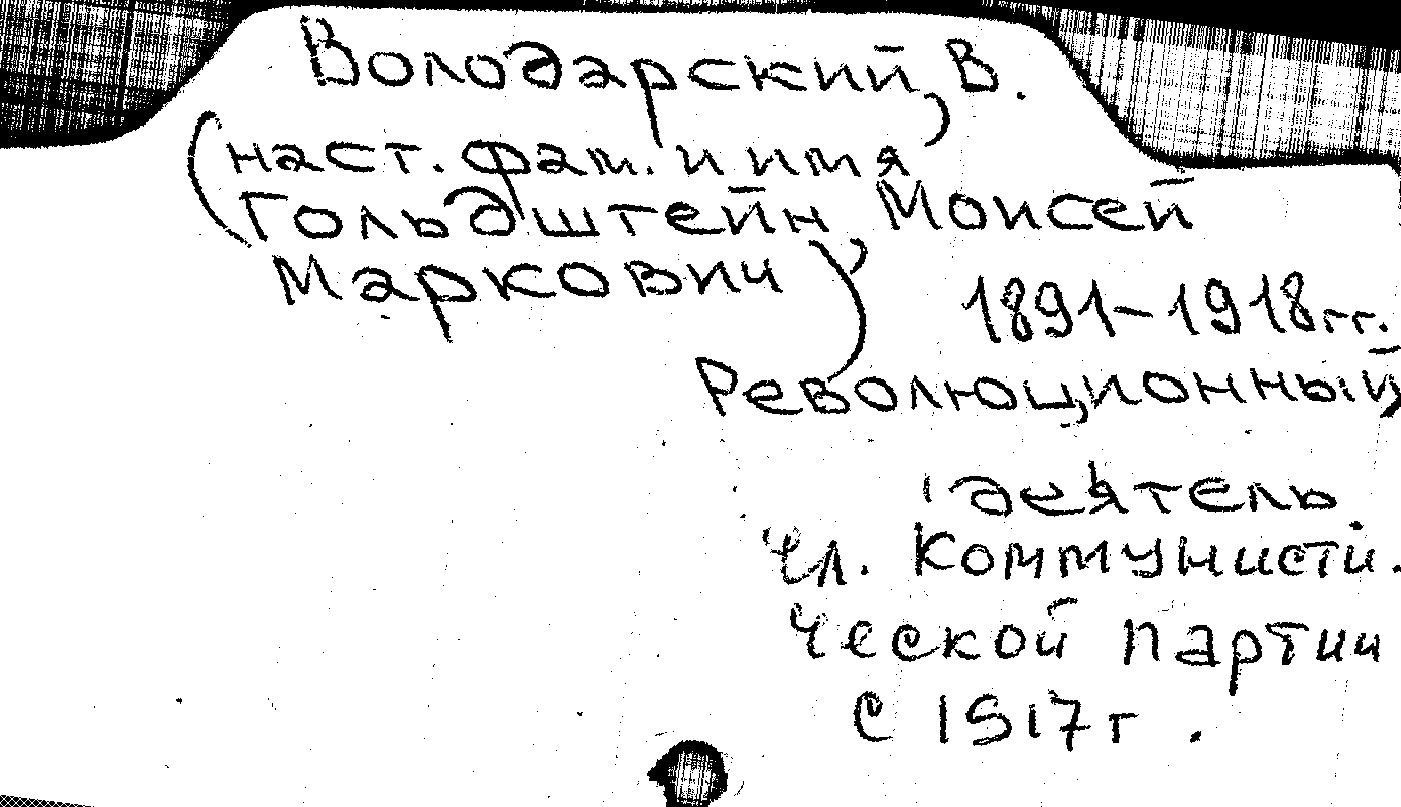 Володарский, В.
(наст. фам. и имя
Гольдштейн, Моисей
Маркович)
1891-1918гг.
Революционный
деятель
Чл. Коммунисти-
ческой партии
с 1917г.